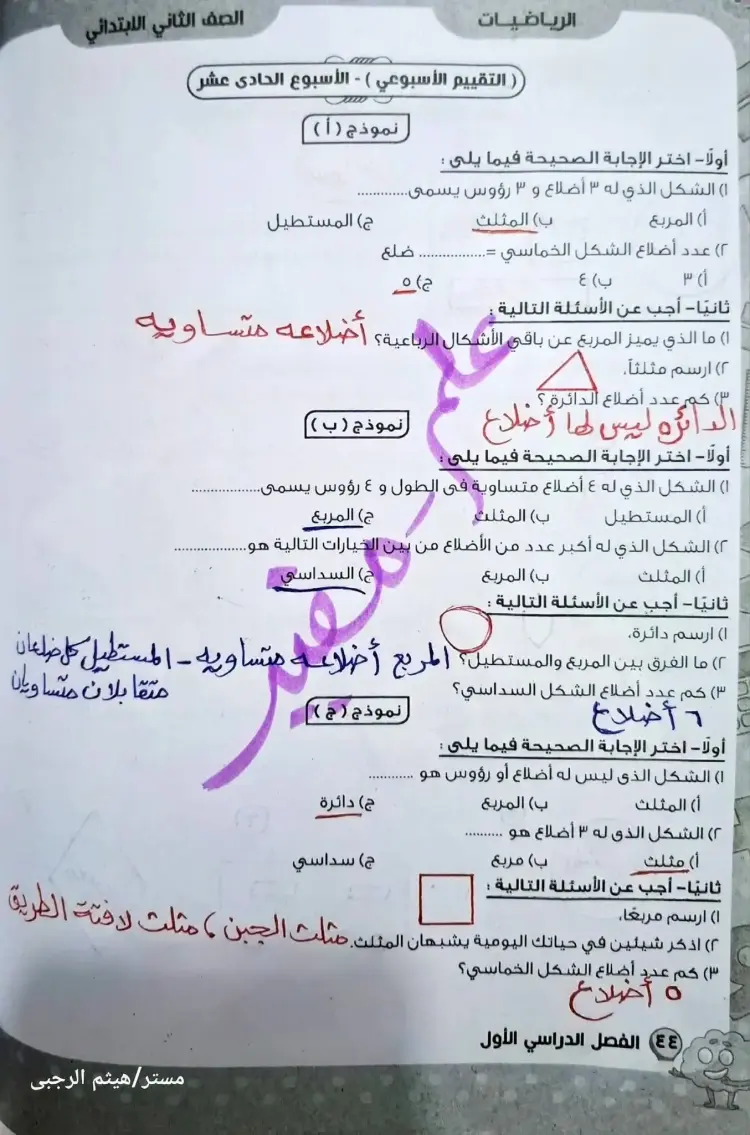 الرياضيات
الصف الثاني الابتدائي
( التقييم الأسبوعي ) - الأسبوع الحادى عشر
نموذج ( أ )
أولًا- اختر الإجابة الصحيحة فيما يلى :
١) الشكل الذي له ٣ أضلاع و ٣ رؤوس يسمى............
أ) المربع ب) المثلث ج) المستطيل
٢) عدد أضلاع الشكل الخماسي =................ ضلع
أ) ٣ ب) ٤ ج) ٥
ثانيًا- أجب عن الأسئلة التالية :
١) ما الذي يميز المربع عن باقي الأشكال الرباعية؟ أضلاعه متساويه
٢) ارسم مثلثاً.
٣) كم عدد أضلاع الدائرة ؟
الدائره ليس لها أضلاع
نموذج ( ب )
أولًا- اختر الإجابة الصحيحة فيما يلى :
١) الشكل الذي له ٤ أضلاع متساوية فى الطول و ٤ رؤوس يسمى.................
أ) المستطيل ب) المثلث ج) المربع
٢) الشكل الذي له أكبر عدد من الأضلاع من بين الخيارات التالية هو..................
أ) المثلث ب) المربع ج) السداسي
ثانيًا- أجب عن الأسئلة التالية :
١) ارسم دائرة.
٢) ما الفرق بين المربع والمستطيل؟ المربع أضلاعه متساويه - المستطيل كل ضلعان
متقابلان متساويان
٣) كم عدد أضلاع الشكل السداسي؟
٦ أضلاع
نموذج ( ج )
أولًا- اختر الإجابة الصحيحة فيما يلى :
١) الشكل الذى ليس له أضلاع أو رؤوس هو ...........
أ) المثلث ب) المربع ج) دائرة
٢) الشكل الذى له ٣ أضلاع هو ..........
أ) مثلث ب) مربع ج) سداسي
ثانيًا- أجب عن الأسئلة التالية :
١) ارسم مربعًا.
٢) اذكر شيئين في حياتك اليومية يشبهان المثلث. مثلث الجبن ، مثلث لافتة الطريق
٣) كم عدد أضلاع الشكل الخماسي؟
٥ أضلاع
٤٤ الفصل الدراسي الأول
مستر/هيثم الرجبى